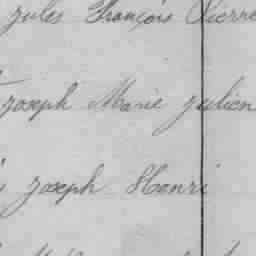 Jules François Pierre
Joseph Marie Julien
Joseph Henri